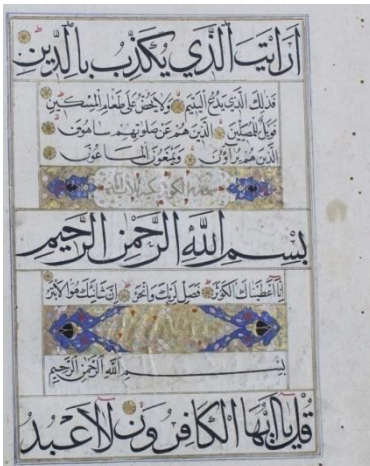 اَرَاَيْتَ الَّذِي يُكَذِّبُ بِالدِّينِ
فَذٰلِكَ الَّذِي يَدُعُّ الْيَتِيمَ وَلَا يَحُضُّ عَلَى طَعَامِ الْمِسْكِينِ
فَوَيْلٌ لِلْمُصَلِّينَ الَّذِينَ هُمْ عَنْ صَلَاتِهِمْ سَاهُونَ
الَّذِينَ هُمْ يُرَاؤُنَ وَيَمْنَعُونَ الْمَاعُونَ
بِسْمِ اللّٰهِ الرَّحْمٰنِ الرَّحِيمِ
اِنَّا اَعْطَيْنَاكَ الْكَوْثَرَ فَصَلِّ لِرَبِّكَ وَانْحَرْ اِنَّ شَانِئَكَ هُوَ الْاَبْتَرُ
بِسْمِ اللّٰهِ الرَّحْمٰنِ الرَّحِيمِ
قُلْ يَا اَيُّهَا الْكَافِرُونَ لَا اَعْبُدُ